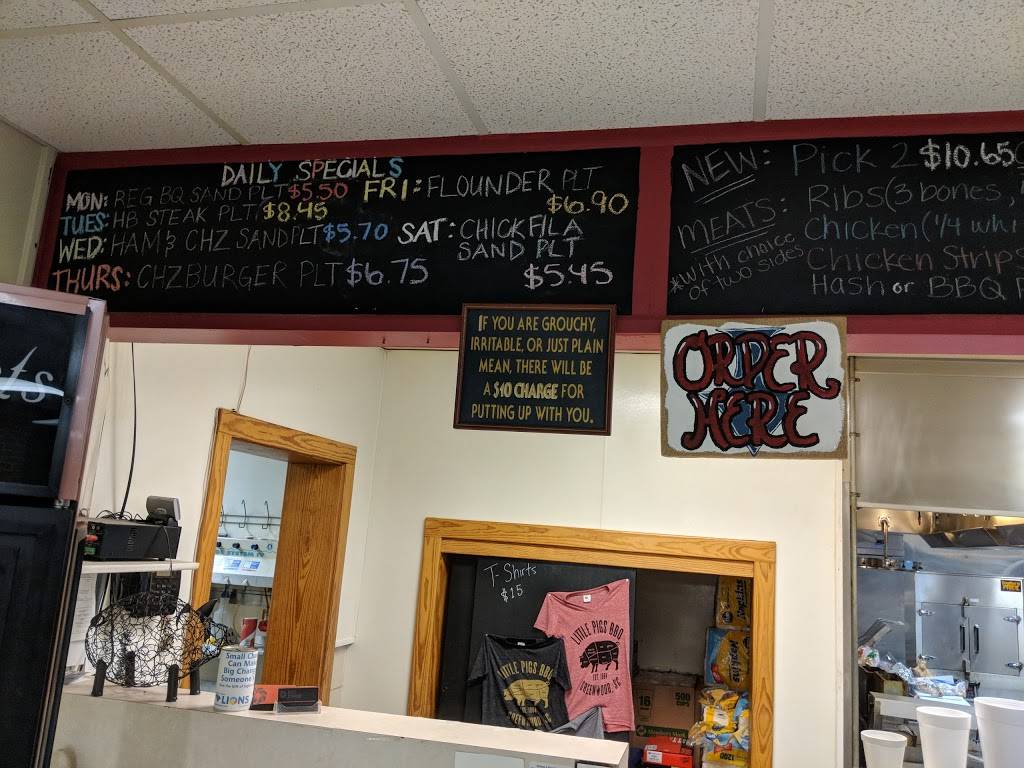 DAILY SPECIALS
MON: REG BQ SAND PLT $5.50
TUES: HB STEAK PLT $8.45
WED: HAM & CHZ SAND PLT $5.70
THURS: CHZBURGER PLT $6.75
FRI: FLOUNDER PLT
$6.90
SAT: CHICKFILA
SAND PLT
$5.45
NEW: Pick 2 $10.65
MEATS: Ribs (3 bones,
Chicken (1/4 whi
*with choice
of two sides
Chicken Strips
Hash or BBQ
IF YOU ARE GROUCHY,
IRRITABLE, OR JUST PLAIN
MEAN, THERE WILL BE
A $10 CHARGE FOR
PUTTING UP WITH YOU.
ORDER
HERE
ts
T-Shirts
$15
LITTLE PIGS BBQ
GREENWOOD, SC
LITTLE PIGS BBQ
GREENWOOD
Small Ch
Can Ma
Big Cha
Someone
LIONS
16
500